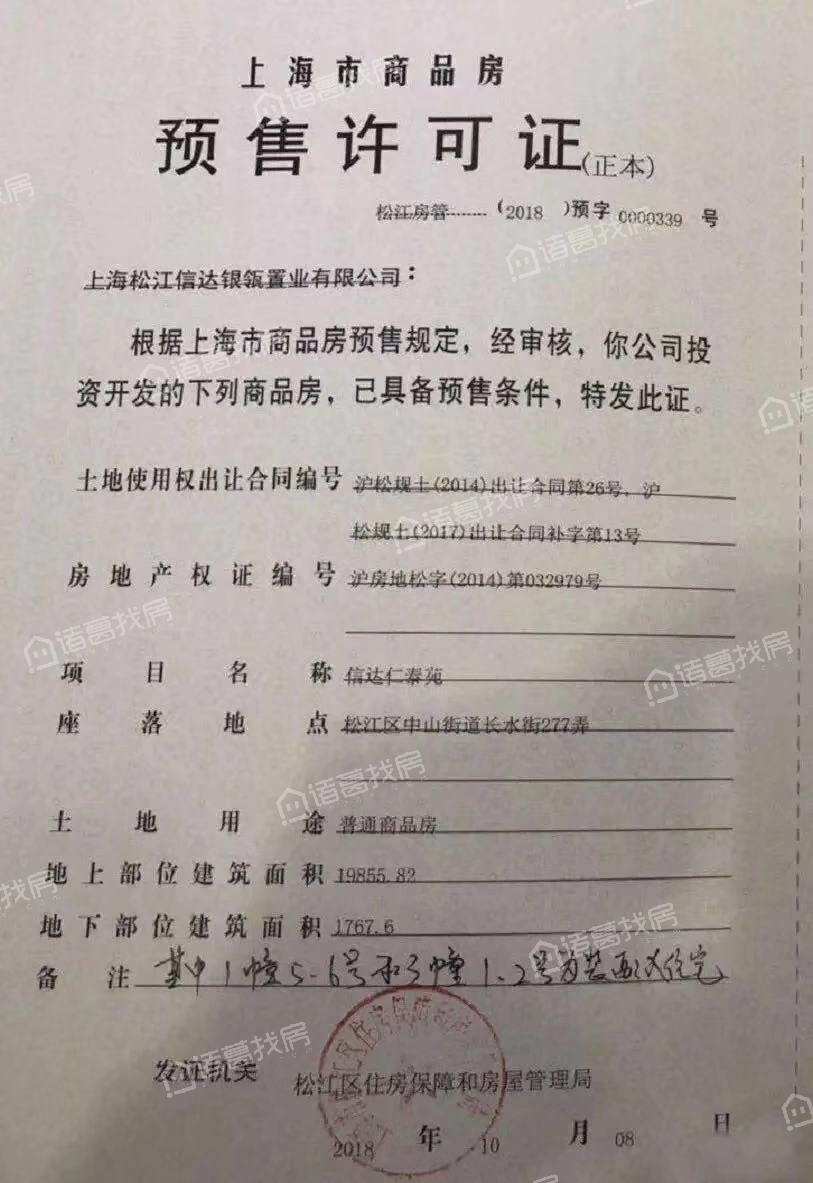 上海市商品房
预售许可证(正本)
松江房管 (2018)预字 0000339 号
上海松江信达银瓴置业有限公司:
根据上海市商品房预售规定,经审核,你公司投
资开发的下列商品房,已具备预售条件,特发此证。
土地使用权出让合同编号 沪松规土(2014)出让合同第26号, 沪
松规土(2017)出让合同补字第13号
房地产权证编号 沪房地松字(2014)第032979号
项目名称 信达仁泰苑
座落地点 松江区中山街道长水街277弄
土地用途 普通商品房
地上部位建筑面积 19855.82
地下部位建筑面积 1767.6
备注 其中1幢5-6号和3幢1.2号为装配式住宅
发证机关 松江区住房保障和房屋管理局
2018 年 10 月 08 日
诸葛找房